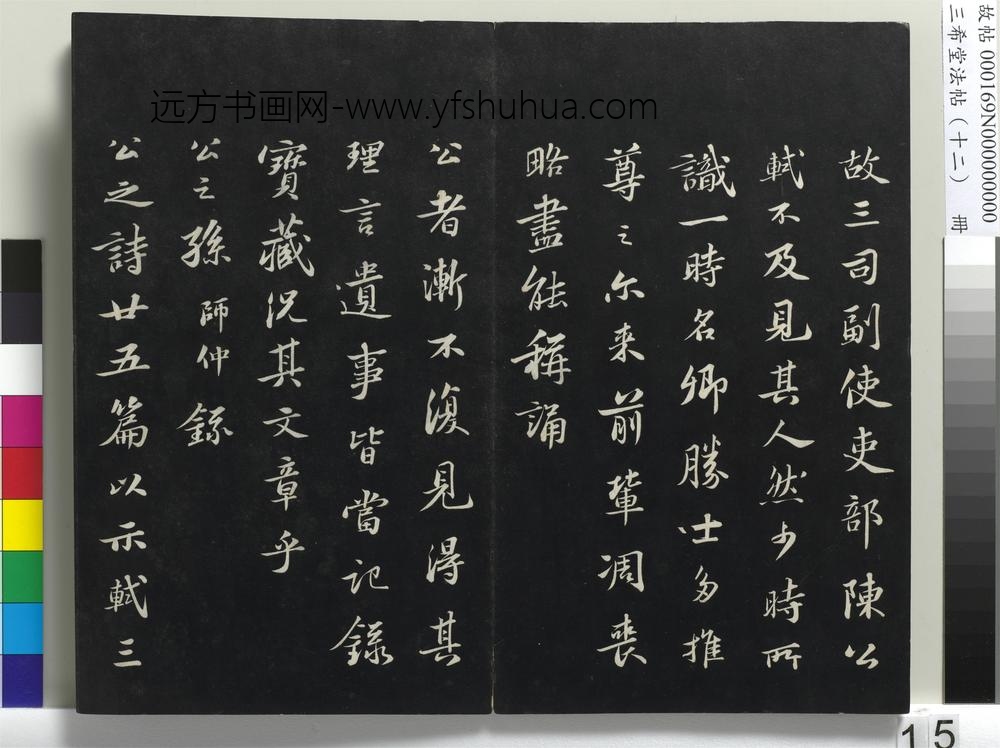 故三司副使吏部陳公
軾不及見其人然少時所
識一時名卿勝士多推
尊之尔来前輩凋喪
略盡能稱誦
公者漸不復見得其
理言遺事皆當記錄
寶藏況其文章乎
公之孫師仲錄
公之詩廿五篇以示軾三
远方书画网-www.yfshuhua.com
故帖 000169N000000000
三希堂法帖（十二） 冊
15